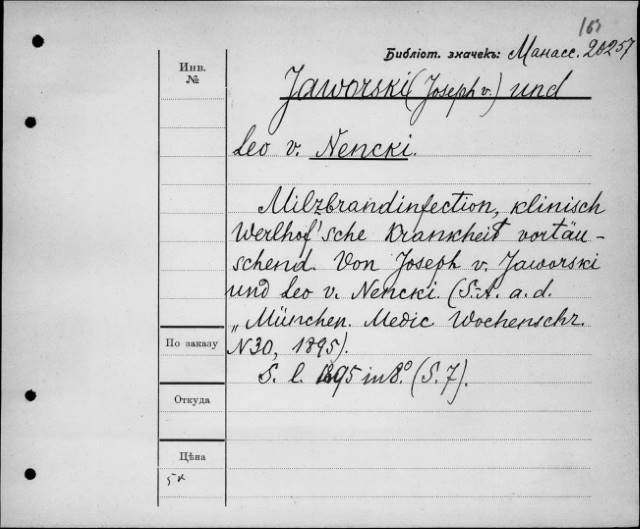 Библіот. значекъ: Манасс. 26257
Инв.
№
Jaworski (Joseph v.) und
Leo v. Nencki.
Milzbrandinfection, klinisch
Werlhof'sche Krankheit vortäu-
schend. Von Joseph v. Jaworski
und Leo v. Nencki. (S.-A. a. d.
„München. Medic Wochenschr.
N30, 1895).
S. l. 1895 in 8.° (S. 7).
По заказу
Откуда
Цѣна